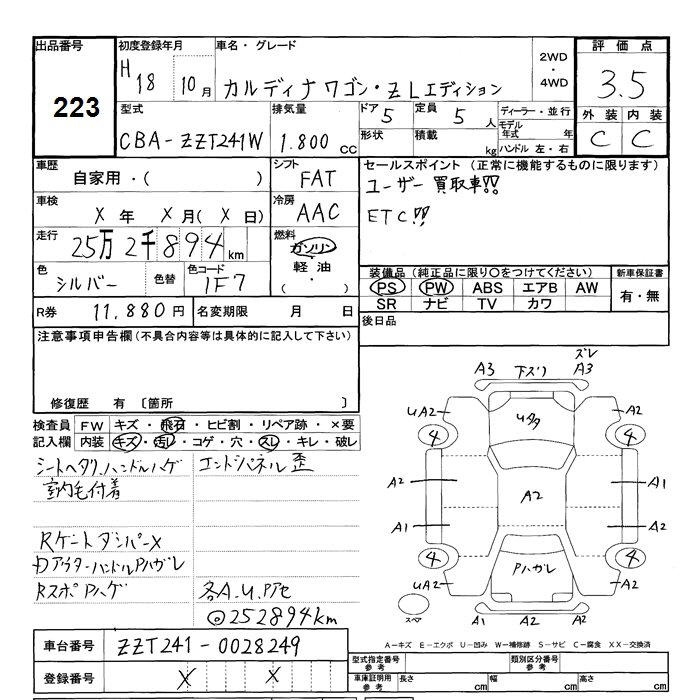 出品番号 初度登録年月 車名・グレード 評価点
223 H 18 10月 カルディナワゴン・ZLエディション 2WD・4WD 3.5
型式 排気量 ドア 5 定員 5人 ディーラー・並行 外装 内装
CBA-ZZT241W 1.800cc 形状 積載 kg モデル年式 年 C C
ハンドル 左・右
車歴 自家用・( ) シフト FAT セールスポイント (正常に機能するものに限ります)
車検 X年 X月(X日) 冷房 AAC ユーザー買取車!!
ETC!!
走行 25万2千894km 燃料 ガソリン 軽油 ・( )
色 シルバー 色替 色コード 1F7 装備品 (純正品に限り○をつけてください) 新車保証書
PS PW ABS エアB AW 有・無
R券 11.880円 名変期限 月 日 SR ナビ TV カワ
後日品
注意事項申告欄(不具合内容等は具体的に記入して下さい)
修復歴 有 〔箇所 〕
検査員 FW キズ・飛石・ヒビ割・リペア跡・×要
記入欄 内装 キズ・汚レ・コゲ・穴・スレ・キレ・破レ
シートヘタリ.ハンドルハゲ エンドパネル歪
室内毛付着
RゲートダンパーX
DアウターハンドルPハガレ
RスポPハゲ 各A.U.Pアセ
◎252894km
A3 下スリ ズレ A3
UA2 Uタタ A2
4 4
A2 A2 A1
A1 A2
4 4
UA2 Pハガレ UA2
スペア A1 A2 A2
A-キズ E-エクボ U-凹み W-補修跡 S-サビ C-腐食 XX-交換済
車台番号 ZZT241-0028249
登録番号 X X
型式指定番号 参考 類別区分番号 参考
車庫証明用 参考 長さ cm 幅 cm 高さ cm